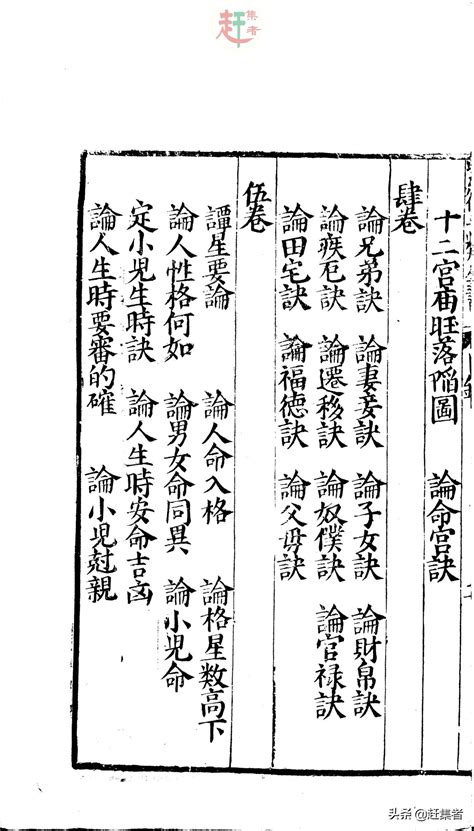 赶集者
十二宮庙旺落陷圖 論命宮訣
肆卷
論兄弟訣 論妻妾訣 論子女訣 論財帛訣
論疾厄訣 論遷移訣 論奴僕訣 論官禄訣
論田宅訣 論福德訣 論父母訣
伍卷
譚星要論 論人命入格 論格星數高下
論人性格何如 論男女命同異 論小児命
定小児生時訣 論人生時安命吉凶
論人生時要審的確 論小児尅親
头条@赶集者